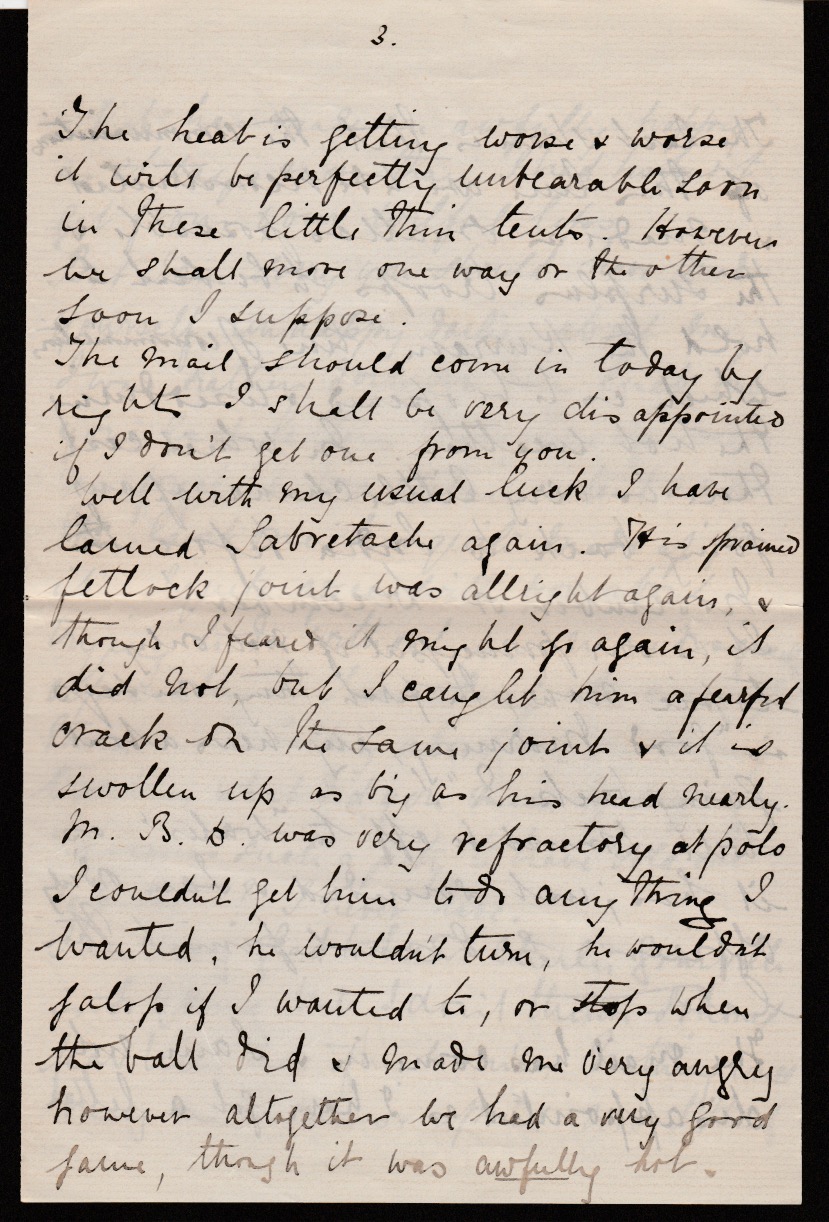 3.
The heat is getting worse & worse
it will be perfectly unbearable soon
in these little thin tents. However
we shall move one way or the other
soon I suppose.
The mail should come in today by
rights I shall be very disappointed
if I don't get one from you.
Well with my usual luck I have
lamed Sabretache again. His sprained
fetlock joint was allright again, &
though I feared it might go again, it
did not, but I caught him a fearful
crack on the same joint & it is
swollen up as big as his head nearly.
M. B. D. was very refractory at polo
I couldn't get him to do anything I
wanted, he wouldn't turn, he wouldn't
galop if I wanted to, or stop when
the ball did & made me very angry
however altogether we had a very good
game, though it was awfully hot.